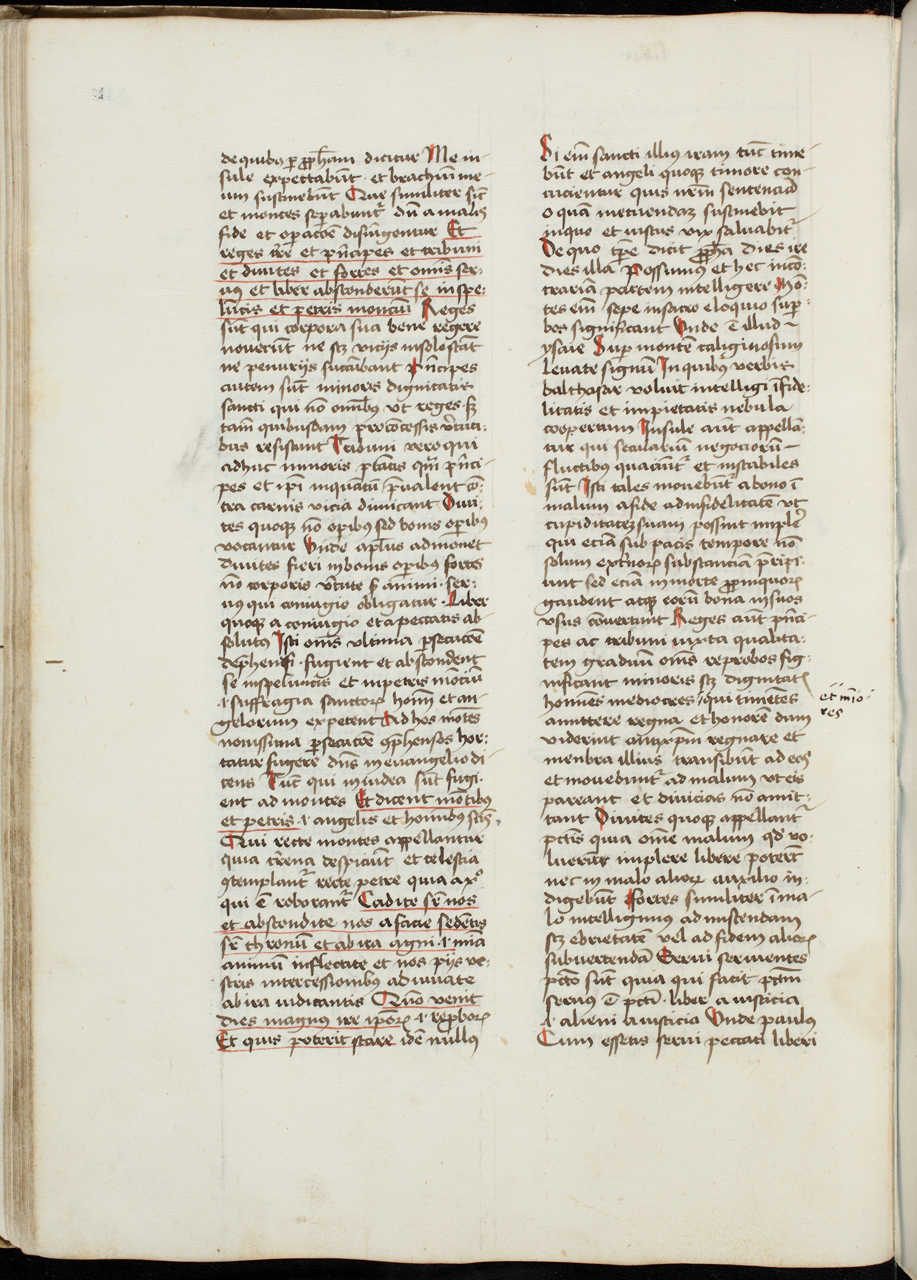 de quibus per ꝓph̄am dicitur Me in-
sule expectabūt · et brachiū me-
um sustinebūt Quare similiter sūt
et montes separabuntᷣ dū a malis
fide et oꝑacōe disiungontur Et
reges tr̄e et pⁱncipes et tribuni
et diuites et fortes et omīs ser-
uꝰ et liber absconderūt se in spe-
lūcis et petris monciū Reges
sūt qui corpora sua bene regere
nouerūt ne scꝫ vicijs insolescāt
ne penurijs sucūbant Pⁱncipes
autem sūt minoris dignitatis
sancti qui nō omībꝫ vt reges sꝫ
tam̄ quibusdam pro cōcessis v̄tuti-
bus resistunt Tribuni vero qui
adhuc minoris ptātis qm̄ pⁱnci-
pes et ip̄i inquātū p̄ualent cō-
tra carnis vicia dimicant Diui-
tes quoqꝫ nō opibus sed bonis oꝑibꝰ
vocantur Vnde apl̄us admonet
diuites fieri in bonis oꝑibus fortes
nō corporis v̄tute sꝫ animi · ser-
uꝰ qui coniugio obligatur · Liber
quoqꝫ a coniugio et a peccatis ab-
solutꝰ Isti om̄s vltima ꝑsecucōe
dephensi · fugient et abscondent
se in speluncis et in petris mōciū
.i. suffragia sanctoꝝ hoīm et an-
gelorum expetent Ad hos mōtes
nouissima ꝑsecucōe ꝯphensos hor-
tatur fugere dn̄s in euangelio di-
cens Tūc qui in iudea sūt fugi-
ent ad montes Et dicent mōtibus
et petris .i. angelis et homībus sc̄is
Qui recte montes appellantur
quia terrena despiciūt et celestia
ꝯtemplantᷣ recte petre quia a xᵒ
qui ē roborantᷣ Cadite sr̄ nos
et abscondite nos a facie sedētis
sr̄ thronū et ab ira agni .i. mia
animū inflectate et nos pijs ve-
stris intercessionibus adiuuate
ab ira iudicantis Quō venit
dies magnus ire ipōꝝ .i. reproboꝝ
Et quis poterit stare idē nullus
Si eīm sancti illiꝰ iram tūc time-
būt et angeli quoqꝫ timore con-
cucientur quis nr̄m sentenciā
o quā metuendaꝫ sustinebit
in quo et iustus vix saluabitᷣ
De quo tp̄e dicit ꝓph̄a dies ire
dies illa Possumus et hec in cō-
trariā partem intelligere Mō-
tes eīm sepe in sacro eloquio suꝑ-
bos significant Vnde ē illud
ysaie Suꝑ montē caliginosum
leuate signū In quibus verbis
balthasar voluit intelligi īfide-
litatis et impietatis nebula
coopertum Insule aūt appellā-
tur qui seculariū negociorū
fluctibus quaciūtᷣ et instabiles
sūt Isti tales mouebūtᷣ a bono ī
malum a fide ad infidelitatē vt
cupiditateꝫ suam possint implere
qui eciā sub pacis tempore nō
solum ext̄noꝝ substanciā p̄ripi-
unt sed eciā in morte ꝓpinquoꝝ
gaudent atqꝫ eorū bona in suos
vsus cōuertunt Reges aūt pⁱnci-
pes ac tribuni iuxta qualita-
tem graduū om̄s reprobos sig-
nificant minoris scꝫ dignitatꝭ
homīes mediocres / qui timētes
amittere regna et honorē dum
viderint antixpm̄ regnare et
menbra illius transibūt ad eos
et mouebuntᷣ ad malum vt eis
pareant et diuicias nō amit-
tant Diuites quoqꝫ appellantᷣ
pctīs quia ome malum qd̄ vo-
luerint implere libere poterūt
nec in malo alioꝝ auxilio in-
digebūt Fortes similiter ī ma-
lo intelligimus ad miscendam
scꝫ ebrietatē vel ad fidem alioꝝ
subuertendā Serui seruientes
pctō sūt quia qui facit pctm̄
seruus ē pctī · liber a iusticia
.i. alieni a iusticia Vnde paulus
Cum essetis serui peccati liberi
et mīo
res